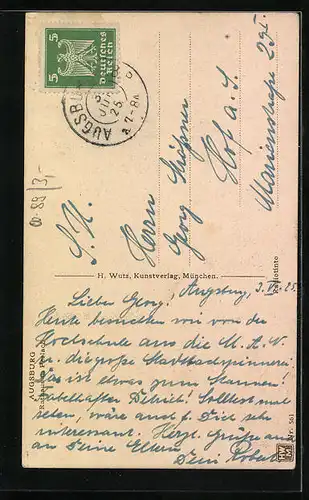 5 5
Deutsches
Reich
AUGSBURG
25
7-8
S. H.
Herrn
Georg
Hof a. S.
Marienstraße 29I.
H. Wutz, Kunstverlag, München.
Radiotinto
AUGSBURG
Nr. 561
Augsburg, 3.VI.25.
Lieber Georg!
Heute besuchten wir von der
Hochschule aus die M.A.N.
u. die große Stadtbachspinnerei
Das ist etwas zum Staunen!
Fabelhafter Betrieb! Solltest mal
sehen, wäre auch f. Dich sehr
interessant. Herzl. Grüße auch
an Deine Eltern
Dein Robert